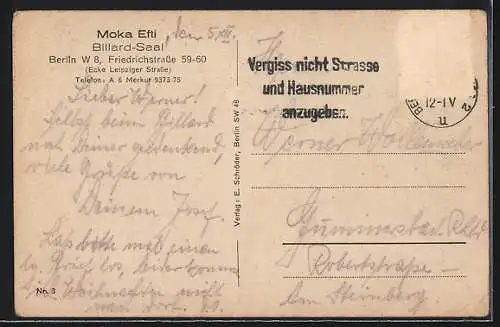 Moka Efti
Billard-Saal
Berlin W 8, Friedrichstraße 59-60
(Ecke Leipziger Straße)
Telefon: A 6 Merkur 9373-75
den 5/XII.
Lieber Werner!
Selbst beim Billard
noch Deiner gedenkend,
viele Grüße von
Deinem Josef.
Lass bitte mal einen
Brief los, leider komme
Weihnachten nicht
nach dort.
Nr. 3
Verlag: E. Schröder, Berlin SW 48
Vergiss nicht Strasse
und Hausnummer
anzugeben.
12-1 V
u
Herrn
Werner
Gummersbach Rhld
Robertstraße
Am Steinberg.